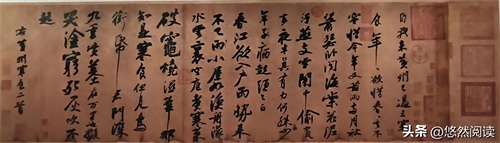 自我來黃州已過三寒
食年年欲惜春春去不
容惜今年又苦雨兩月秋
蕭瑟臥聞海棠花泥
汙燕支雪闇中偷負
去夜半真有力何殊少
年子病起頭已白
春江欲入戶雨勢來
不已雨小屋如漁舟濛濛
水雲裏空庖煮寒菜
破竈燒濕葦那
知是寒食但見烏
銜帋君門深
九重墳墓在萬里也擬
哭塗窮死灰吹不
起
右黃州寒食二首
头条 @悠然阅读